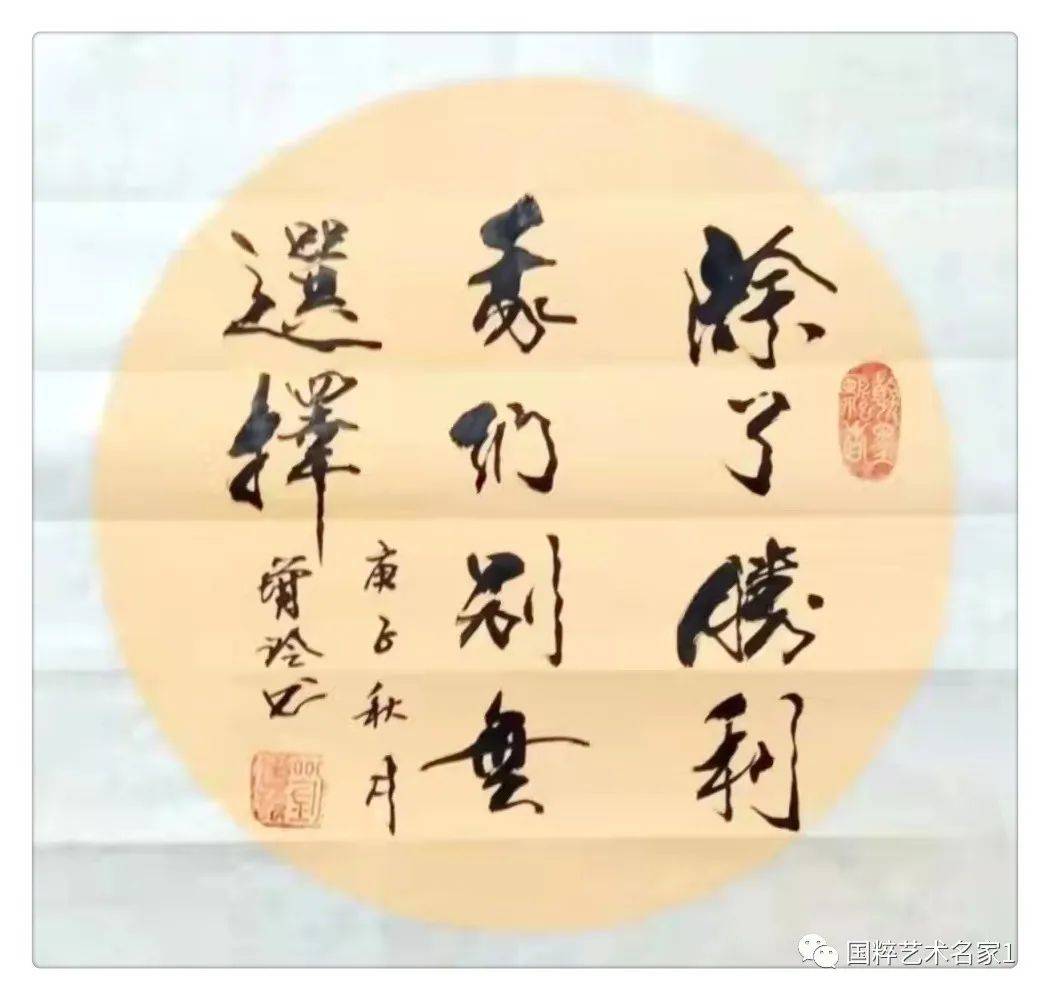 除了勝利
我們别無
選擇
庚子秋月
曾玲书
国粹艺术名家1